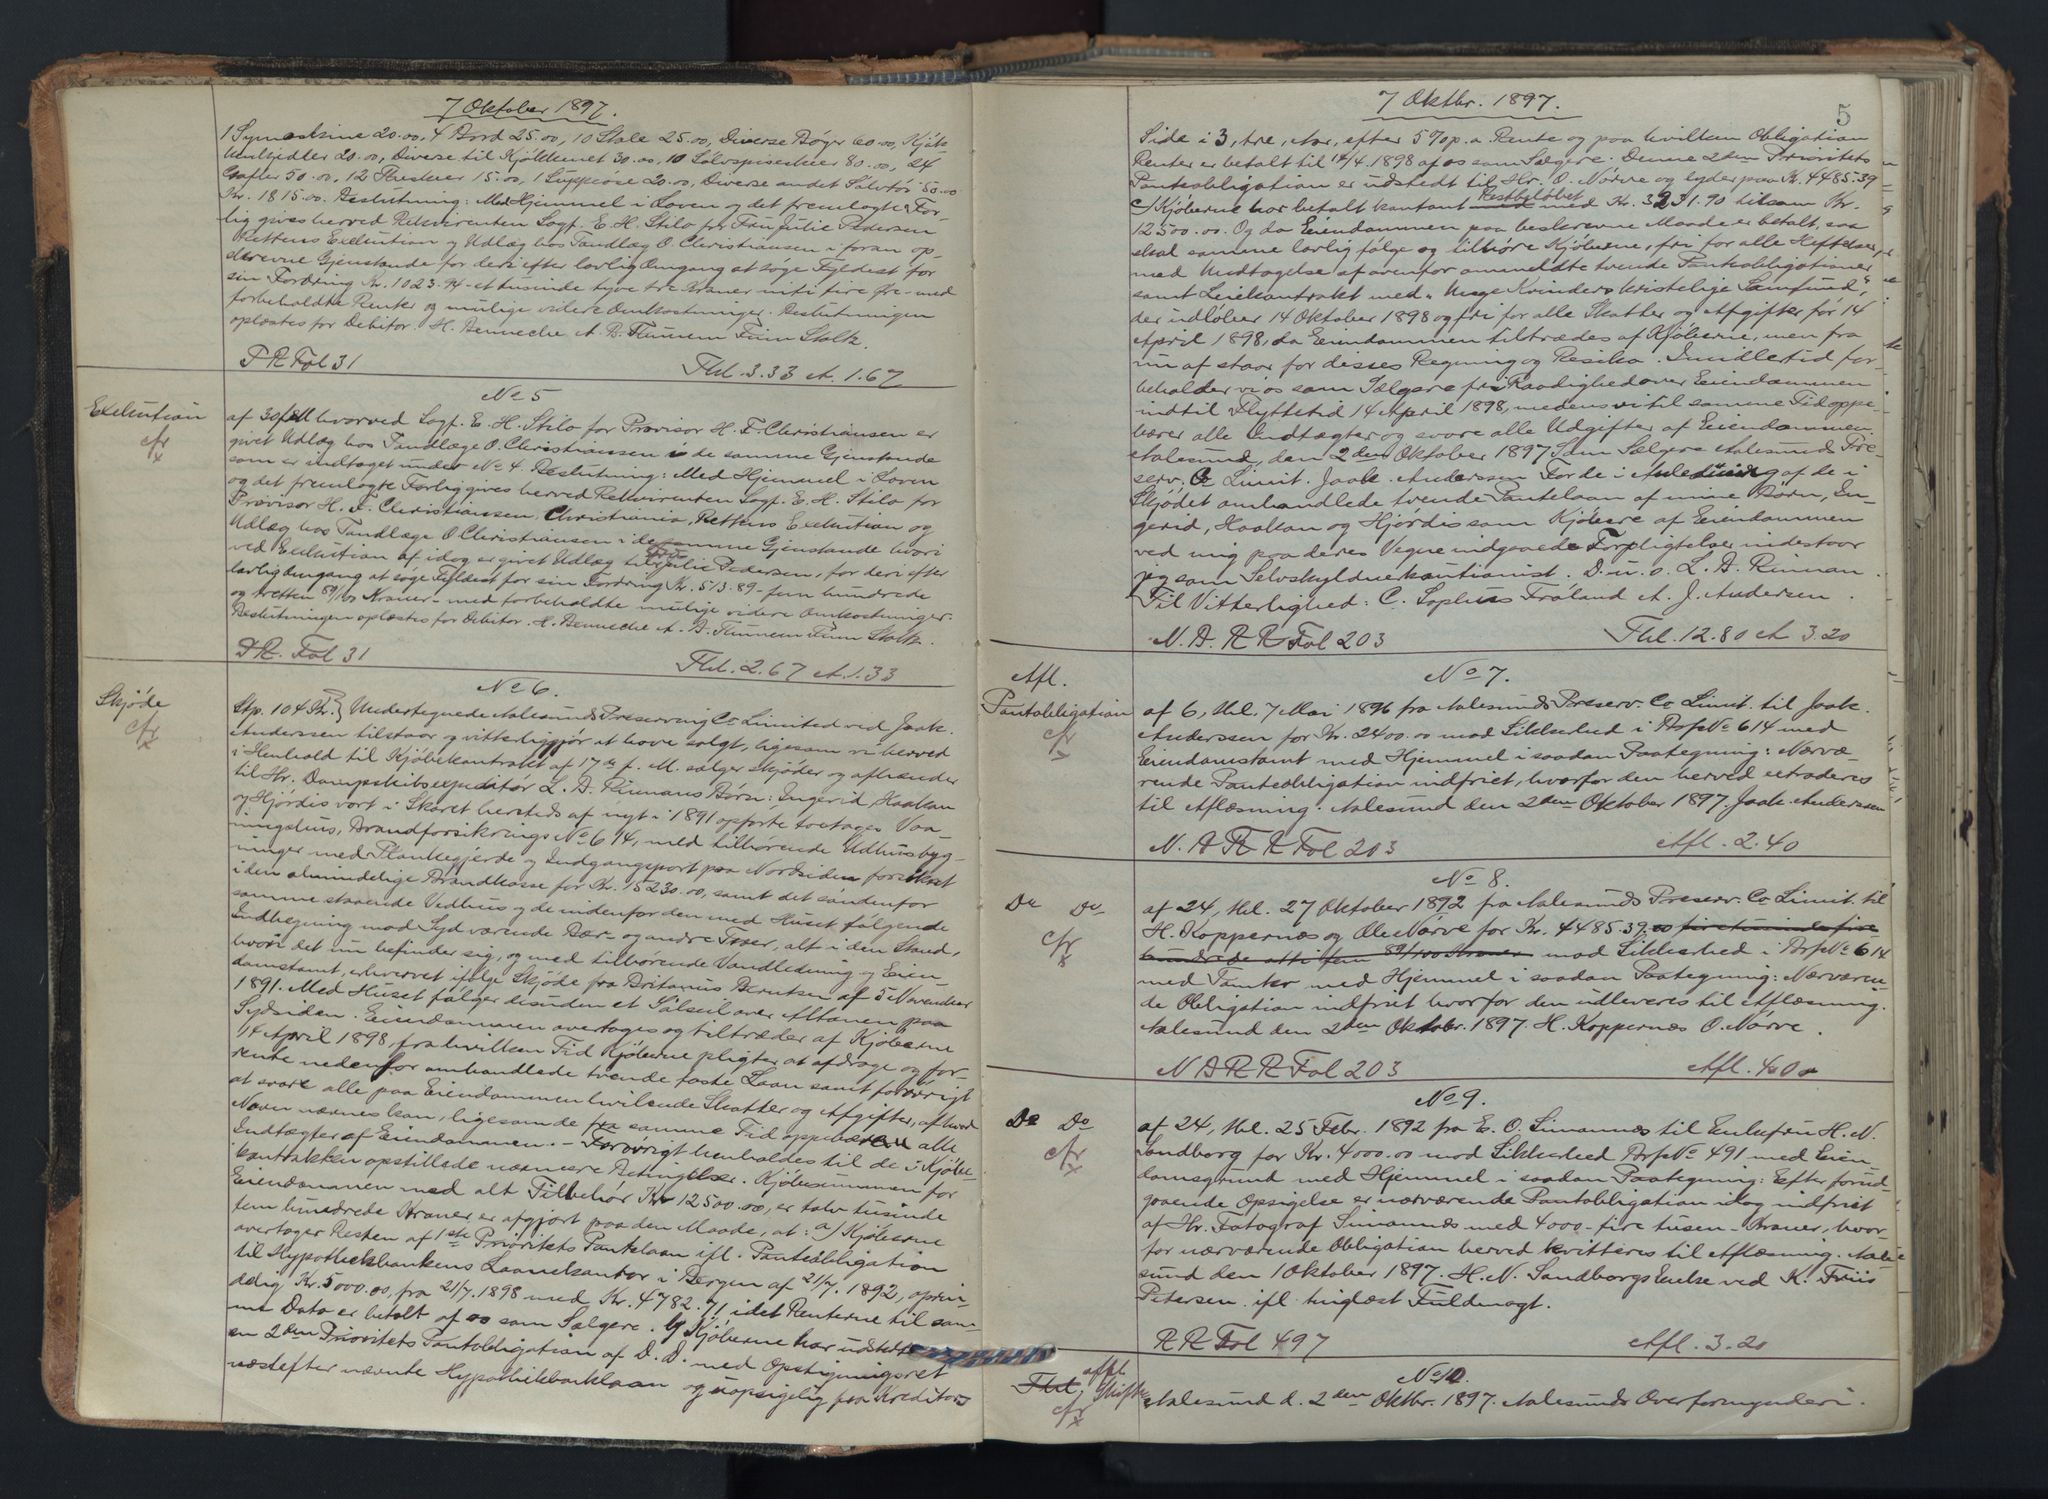 7 Oktober 1897.
1 Symaskine 20.00, 4 Bord 25.00, 10 Stole 25.00, Diverse Bøger 60.00, Kjøk-
20.00, Diverse til Kjøkkenet 30.00, 10 Sølvspiseskeer 80.00, 24
Gafler 50.00, 12 Theskeer 15.00, 1 Suppeøse 20.00, Diverse andet Sølvtøi 50.00
Kr. 1815.00. Beslutning: Med Hjemmel i Loven og det fremlagte For-
lig gives herved Rekvirenten Sagf. E. H. Stilo for Fru Julie Pedersen
Rettens Exekution og Udlæg hos Tandlæg O. Christiansen i foran op-
skrevne Gjenstande for deri efter lovlig Omgang at søge Fyldest for
sin Fordring Kr. 1023.94 - et tusinde tyve tre Kroner niti fire Øre - med
forbeholdte Renter og mulige videre Omkostninger. Beslutningen
oplæstes for Debitor. H. Benneche A. B. Flunem Finn Stolk.
P R Fol 31 Thl. 3.33 A. 1.67
No 5
Exekution
cfr
x
af 30/ hvorved Sagf. E. H. Stilo for Provisor H. F. Christiansen er
givet Udlæg hos Tandlæge O. Christiansen i de samme Gjenstande
som er indtaget under No 4. Beslutning: Med Hjemmel i Loven
og det fremlagte Forlig gives herved Rekvirenten Sagf. E. H. Stilo for
Provisor H. F. Christiansen, Christiania, Rettens Exekution og
Udlæg hos Tandlæge O Christiansen i de samme Gjenstande hvori
ved Exekution af idag er givet Udlæg til Fru Julie Pedersen, for deri efter
lovlig Omgang at søge Fyldest for sin Fordring Kr. 513.89 - fem hundrede
og tretten 89/100 Kroner - med forbeholdte mulige videre Omkostninger.
Beslutningen oplæstes for Debitor. H. Benneche A. B. Flunem Finn Stolk.
P R. Fol 31 Thl. 2.67 A. 1.33
No 6.
Skjøde
cfr
x
Stp. 104 Kr. } Undertegnede Aalesunds Preserving Co Limited ved Jaak.
Anderssen tilstaar og vitterliggjør at have solgt, ligesom vi herved
i Henhold til Kjøbekontrakt af 17de f. M. sælger skjøder og afhænder
til Hr. Dampskibsexpeditør L. A. Rinnans Børn: Ingerid, Haakon
og Hjørdis vort i Skaret heresteds af nyt i 1891 opførte toetages Vaa
ningshus, Brandforsikrings No 614, med tilhørende Udhusbyg-
ninger med Plankegjerde og Indgangsport paa Nordsiden forsikret
i den almindelige Brandkasse for Kr. 15230.00, samt det søndenfor
samme staaende Vedhus og de indenfor den med Huset følgende
Indhegning mod Syd værende Bær- og andre Træer, alt i den Stand,
hvori det nu befinder sig, og med tilhørende Vandledning og Eien-
domstomt, erhvervet ifølge Skjøde fra Britanus Berntsen af 5 November
1891. Med Huset følger desuden et Solseil over Altanen paa
Sydsiden. Eiendommen overtages og tiltræder af Kjøberne
14 April 1898, fra hvilken Tid Kjøberne pligter at afdrage og for-
rente nedenfor omhandlede tvende faste Laan samt forøvrigt
at svare alle paa Eiendommen hvilende Skatter og Afgifter, af hvad
Navn nævnes kan, ligesom de fra samme Tid oppebærer alle
Indtægter af Eiendommen. - Forøvrigt henholdes til de i Kjøbe-
kontrakten opstillede nærmere Betingelser. Kjøbesummen for
Eiendommen med alt Tilbehør Kr 12500.00, er tolv tusinde
fem hundrede Kroner er afgjort paa den Maade, at: a) Kjøberne
overtager Resten af 1ste Prioritets Pantelaan ifl. Pantobligation
til Hypothekbankens Laanekontor i Bergen af 21/7. 1892, oprin-
delig Kr. 5000.00, fra 21/7. 1898 med Kr. 4782.71, idet Renterne til sam-
me Dato er betalt af os som Sælgere. b) Kjøberne har udstedt
en 2den Prioritets Pantobligation af D. D. med Opstigningsret
næstefter nævnte Hypothekbanklaan og uopsigelig fra Kreditors
7 Oktbr. 1897.
5
Side i 3, tre, Aar, efter 5% p. a Rente og paa hvilken Obligation
Renter er betalt til 14/4. 1898 af os som Sælgere. Denne 2den Prioritets
Pantobligation er udstedt til Hr. O. Nørve og lyder paa Kr. 4485.39
c) Kjøberne har betalt kontant Restbeløbet med Kr. 3231.90 tilsam Kr.
12500.00. Og da Eiendommen paa beskrevne Maade er betalt, saa
skal samme lovlig følge og tilhøre Kjøberne, fri for alle Heftelser,
med Undtagelse af ovenfor anmeldte tvende Pantobligationer
samt Leiekontrakt med "Unge Kvinders kristelige Samfund",
der udløber 14 Oktober 1898 og fri for alle Skatter og Afgifter før 14
April 1898, da Eiendommen tiltrædes af Kjøberne, men fra
nu af staar for disses Regning og Resiko. Imidlertid for-
beholder vi os som Sælgere fri Raadighed over Eiendommen
indtil Flyttetid 14 April 1898, medens vi til samme Tid oppe-
bærer alle Indtægter og svare alle Udgifter af Eiendommen.
Aalesund, den 2den Oktober 1897 Som Sælgere Aalesunds Pre-
serv. Co Limit. Jaak. Anderssen For de i Anledning af de i
Skjødet omhandlede tvende Pantelaan af mine Børn, In-
gerid, Haakon og Hjørdis som Kjøbere af Eiendommen
ved mig paa deres Vegne indgaaede Forpligtelser indestaar
jeg som Selvskyldnerkautionist. D. u. s. L. A. Rinnan.
Til Vitterlighed: C. Sophus Frøland A. J. Andersen.
N. B. R R Fol 203 Thl. 12.80 A 3.20
No 7.
Afl.
Pantobligation
cfr
x
af 6, thl. 7 Mai 1896 fra Aalesunds Preserv. Co Limit. til Jaak.
Anderssen for Kr. 2400.00 mod Sikkerhed i Brf No 614 med
Eiendomstomt med Hjemmel i saadan Paategning: Nærvæ-
rende Panteobligation indfriet, hvorfor den herved extraderes
til Aflæsning. Aalesund den 2den Oktober 1897. Jaak. Anderssen
N. B R R Fol 203 Afl. 2.40
No 8.
Do Do
cfr
x
af 24, thl. 27 Oktober 1892 fra Aalesunds Preserv. Co Limit. til
H. Koppernæs og Ole Nørve for Kr. 4485.39 fire tusinde fire
hundrede otti fem 39/100 Kroner mod Sikkerhed i Brf No 614
med Tomter med Hjemmel i saadan Paategning: Nærværen-
de Obligation indfriet hvorfor den udleveres til Aflæsning.
Aalesund den 2den Oktobr. 1897. H. Koppernæs O. Nørve.
N B R R Fol 203 Afl. 4.00
No 9.
Do Do
cfr
x
af 24, thl. 25 Febr. 1892 fra E. O. Simonnæs til Enkefru H. N.
Sandborg for Kr. 4000.00 mod Sikkerhed Brf No 491 med Eien
domsgrund med Hjemmel i saadan Paategning: Efter forud-
gaaende Opsigelse er nærværende Pantobligation idag indfriet
af Hr. Fotograf Simonnæs med 4000 - fire tusen - Kroner, hvor-
for nærværende Obligation herved kvitteres til Aflæsning. Aale
sund den 1 Oktober 1897. H. N. Sandborgs Enke ved K. Friis
Petersen ifl. tinglæst Fuldmagt.
R R Fol 497 Afl. 3.20
No 10.
Thl,
cfr
x
Aalesund d. 2den Oktbr. 1897. Aalesunds Overformynderi.